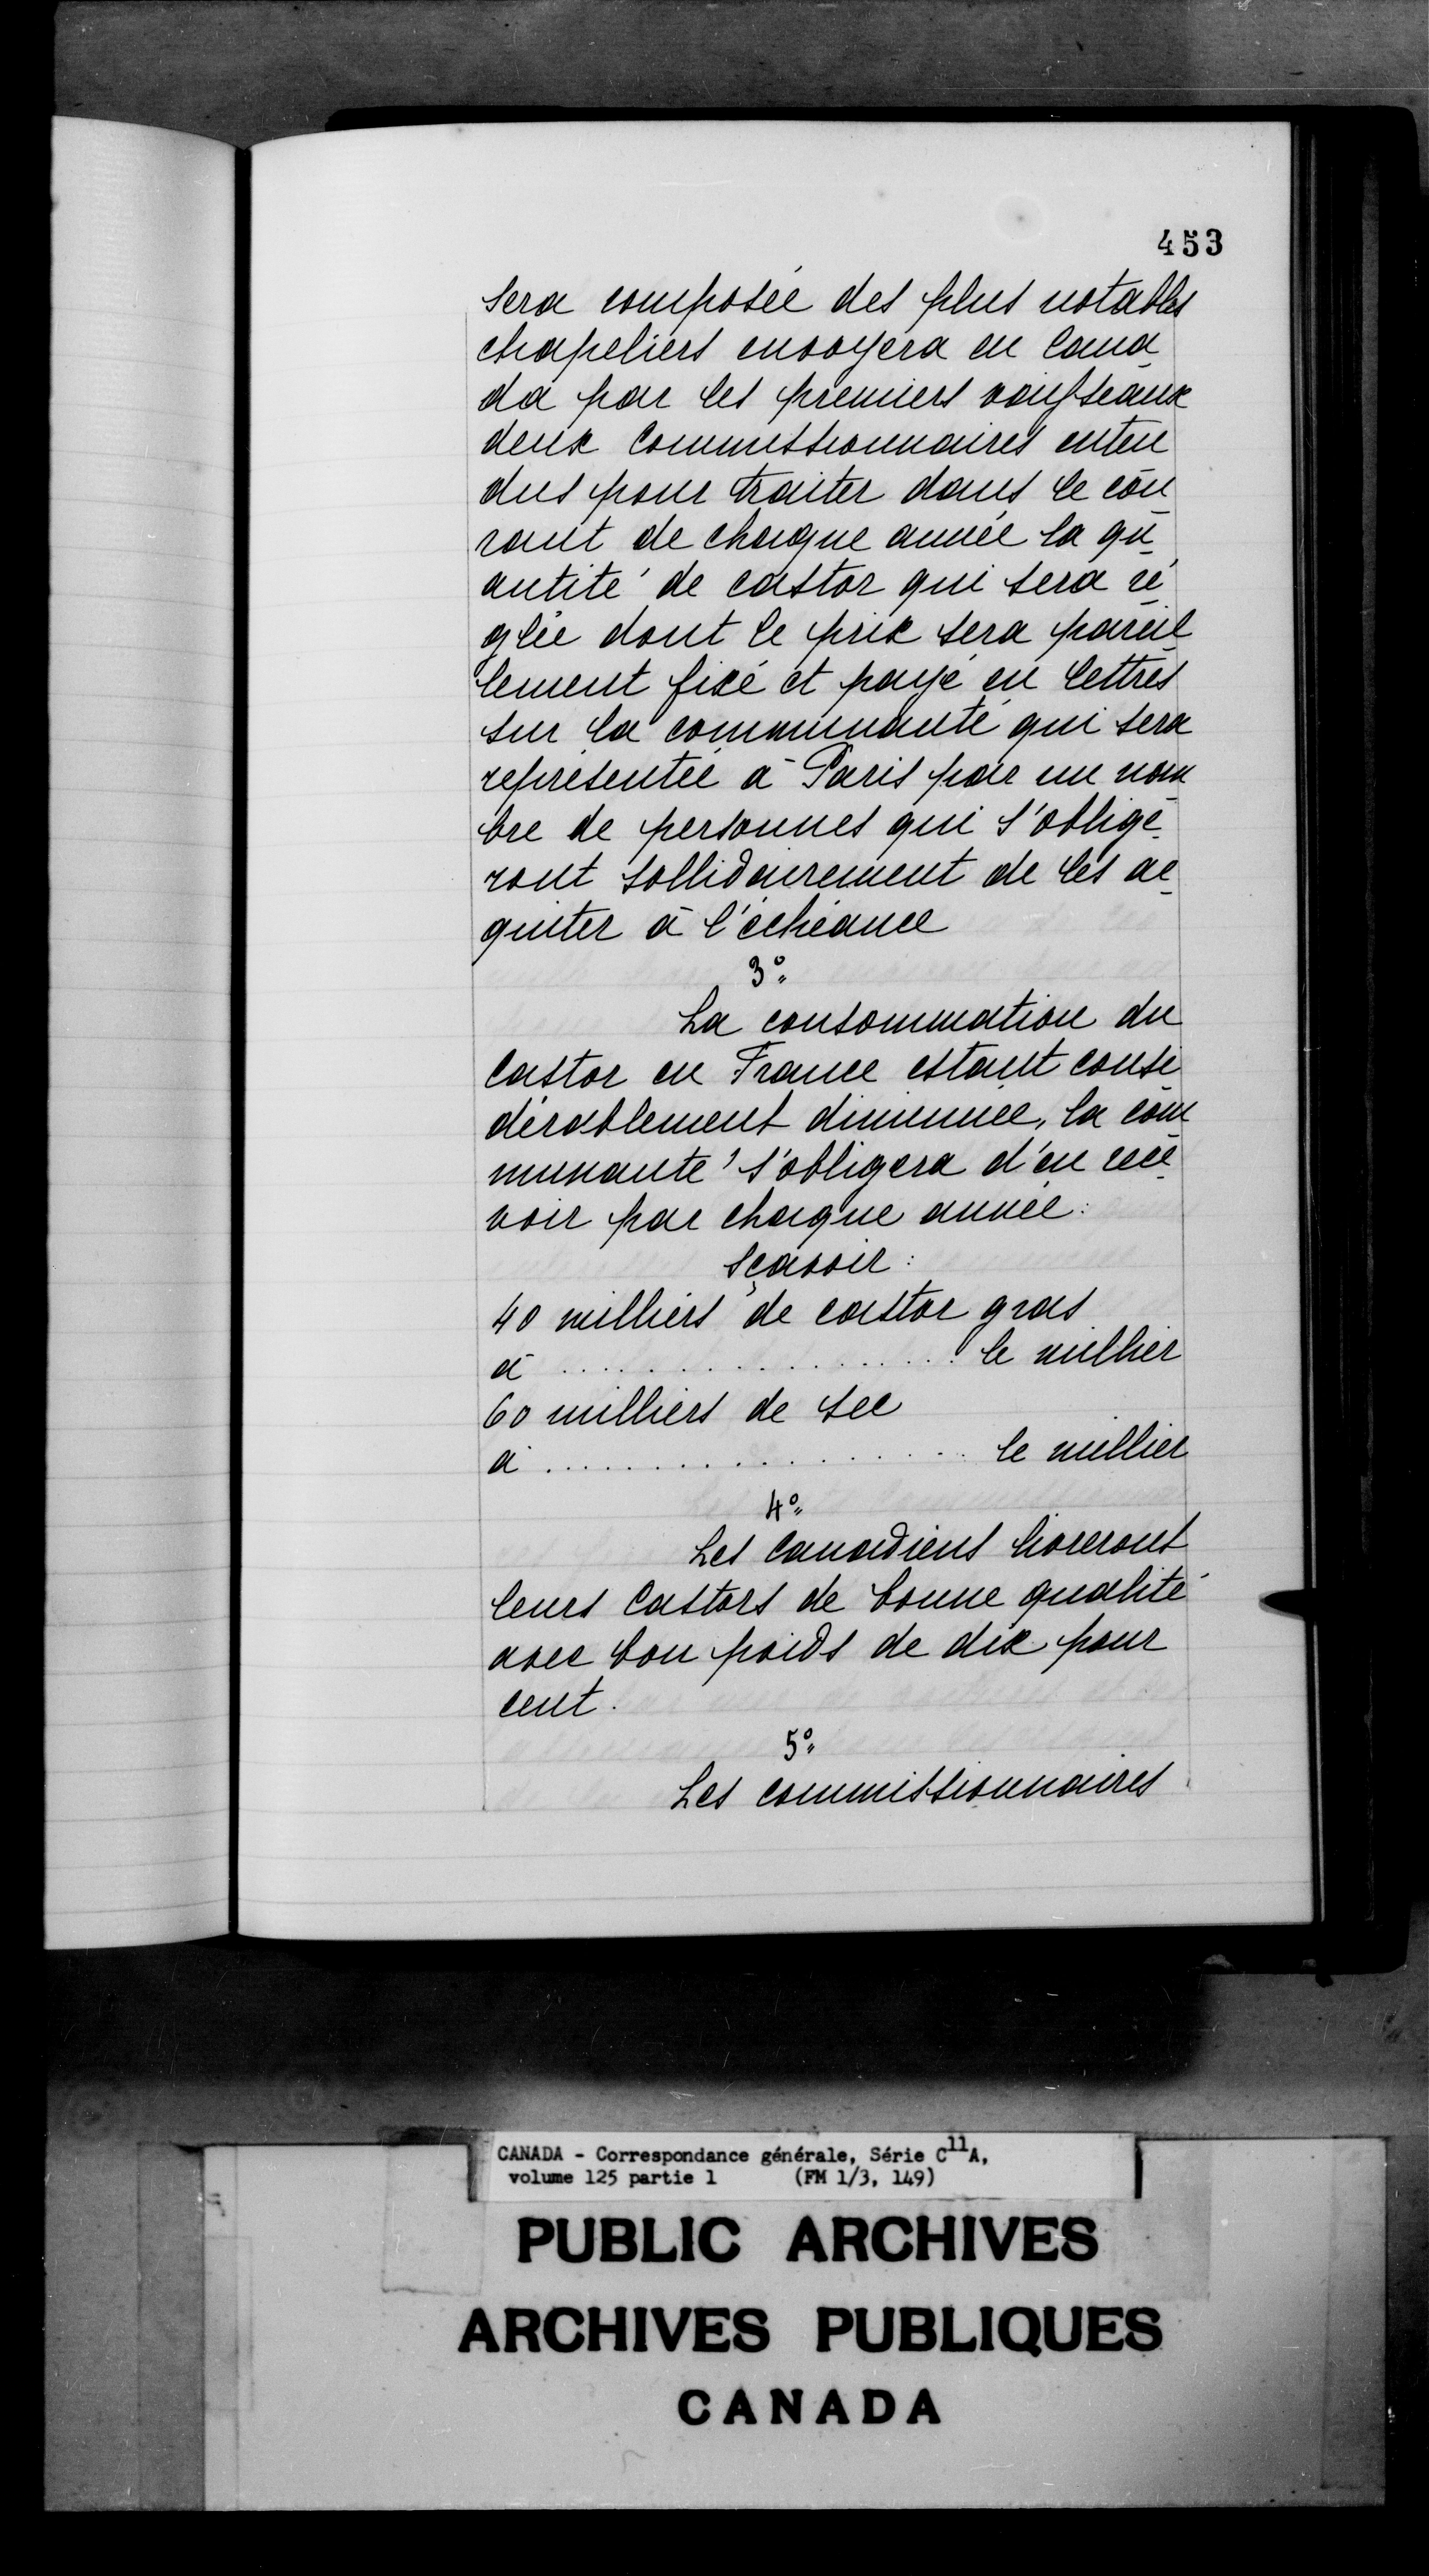 453
sera composée des plus notables
chapeliers envoyera en Cana-
da par les premiers vaisseaux
deux Commissionnaires enten
dus pour traiter dans le cou
rant de chaque année la qu-
antité de castor qui sera ré-
glée dont le prix sera pareil
lement fixé et payé en lettres
sur la communauté qui sera
représentée à Paris par un nom
bre de personnes qui s'oblige-
ront sollidairement de les ac-
quiter à l'échéance
3°
La consommation du
Castor en France estant consi
dérablement diminuée, la com
munauté s'obligera d'en rece-
voir par chaque année:
sçavoir:
40 milliers de castor gras
à .................. le millier
60 milliers de sec
à .................. le millier
4°
Les Canadiens livreront
leurs Castors de bonne qualité
avec bon poids de dix pour
cent.
5°
Les commissionnaires
CANADA - Correspondance générale, Série C11A,
volume 125 partie 1 (FM 1/3, 149)
PUBLIC ARCHIVES
ARCHIVES PUBLIQUES
CANADA